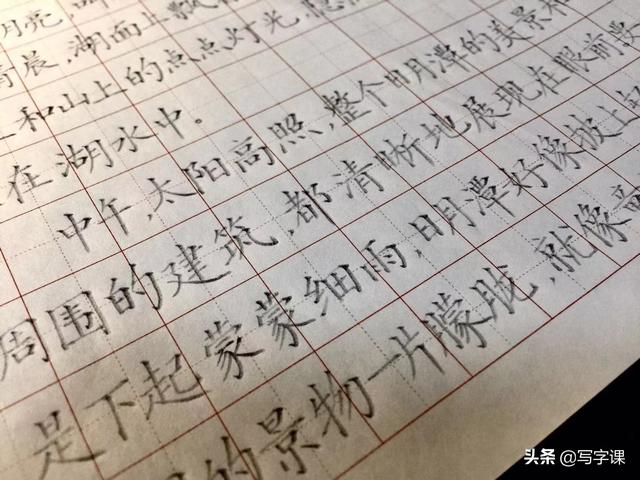 月亮，叫
清晨，湖面上飘
和山上的点点灯光，隐
在湖水中。
中午，太阳高照，整个日月潭的美景和
周围的建筑，都清晰地展现在眼前。要
是下起蒙蒙细雨，日月潭好像披上
的景物一片朦胧，就像童
头条 @写字课